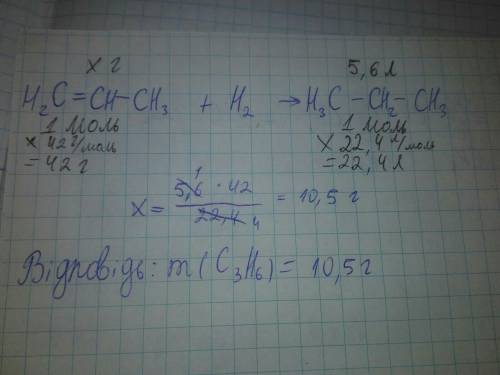 x г 5,6 л
H₂C=CH-CH₃ + H₂ → H₃C-CH₂-CH₃
1 моль 1 моль
x 42 г/моль x 22,4 л/моль
= 42 г = 22,4 л
x = 5,6 1 · 42 / 22,4 4 = 10,5 г
Відповідь: m(C₃H₆) = 10,5 г